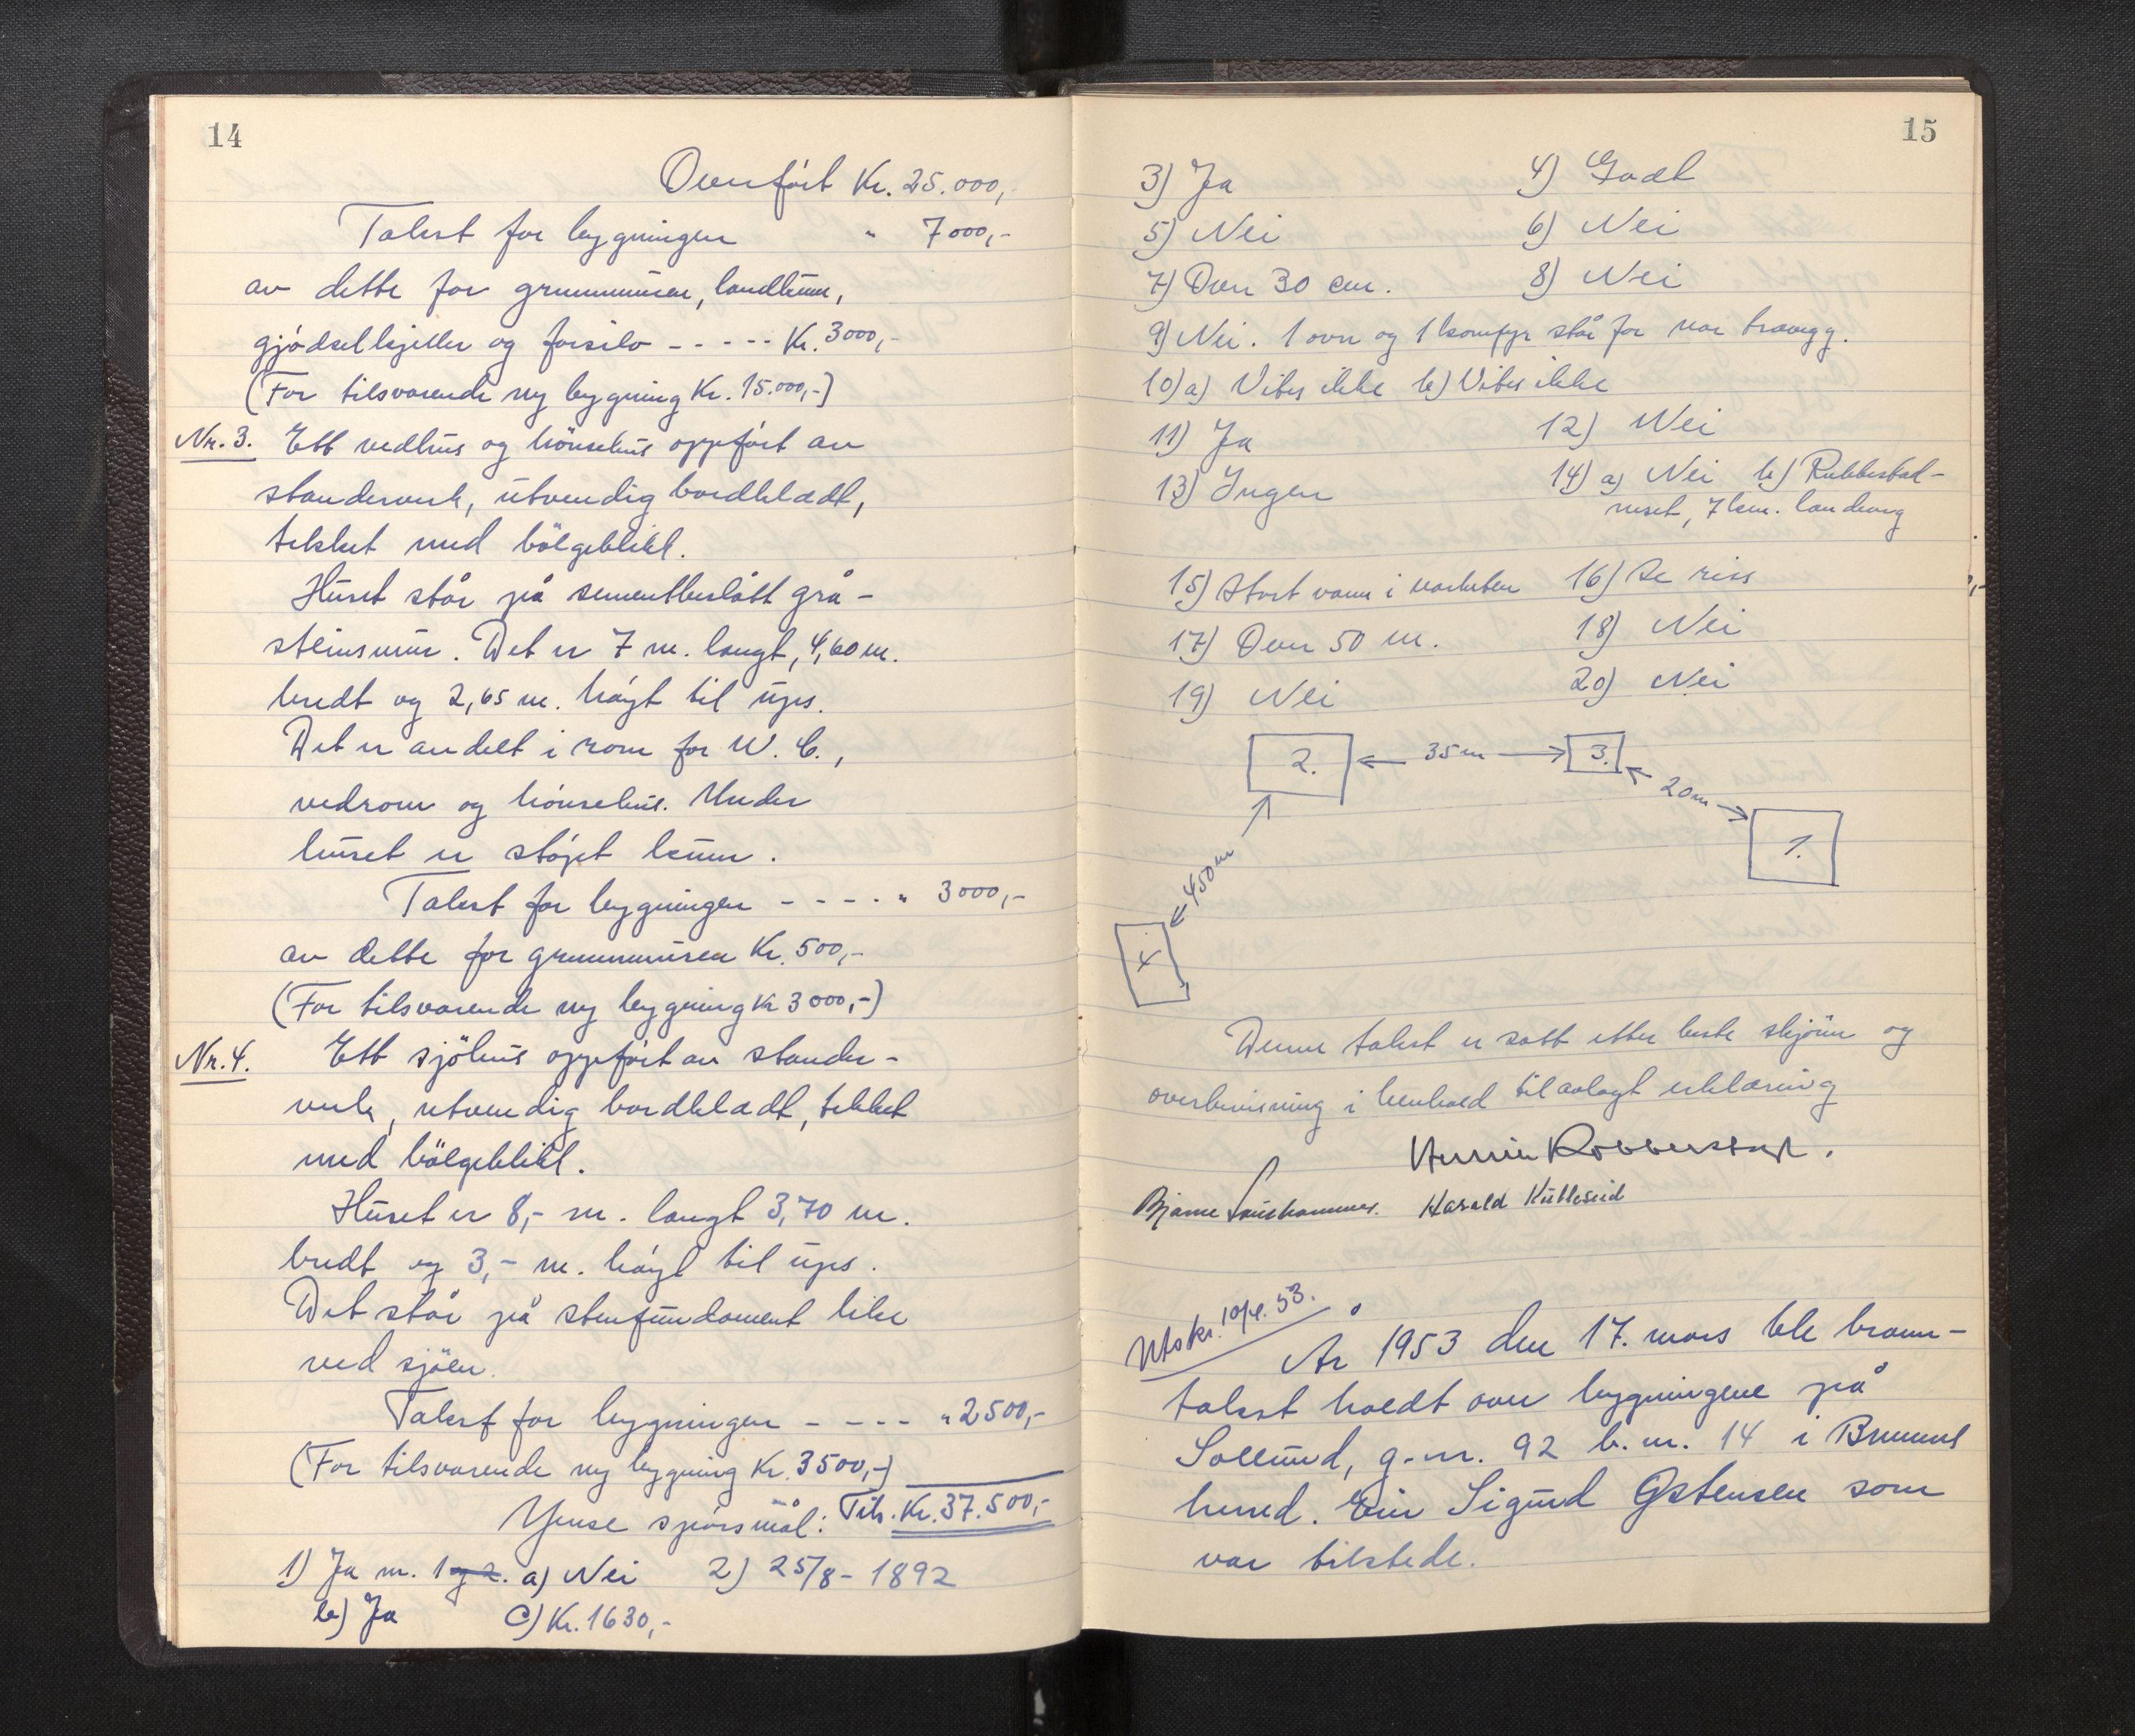 14
Overført Kr. 25.000,-
Takst for bygningen " 7000,-
av dette for grunnmurer, landkum,
gjødselkjeller og forsilo - - - - - Kr. 3000,-
(For tilsvarende ny bygning Kr. 15.000,-)
Nr. 3. Ett vedhus og hönsehus oppført av
standerverk, utvendig bordkledt,
tekket med bölgeblikk.
Huset står på sementbeslått grå-
steinsmur. Det er 7 m. langt, 4,60 m.
bredt og 2,65 m. høyt til ups.
Det er avdelt i rom for W. C.,
vedrom og hönsehus. Under
huset er støpt kum.
Takst for bygningen - - - - " 3000,-
av dette for grunnmuren Kr. 500,-
(For tilsvarende ny bygning Kr 3000,-)
Nr. 4. Ett sjöhus oppført av stander-
verk, utvendig bordkledt, tekket
med bölgeblikk.
Huset er 8,- m. langt 3,70 m.
bredt og 3,- m. høyt til ups.
Det står på stenfundament like
ved sjöen.
Takst for bygningen - - - - " 2500,-
(For tilsvarende ny bygning Kr. 3500,-)
Ymse spørsmål: Tils. Kr. 37.500,-
1) Ja nr. 1 og 2. a) Nei 2) 25/8 - 1892
b) Ja c) Kr. 1630,-
15
3) Ja 4) Godt
5) Nei 6) Nei
7) Over 30 cm. 8) Nei
9) Nei. 1 ovn og 1 komfyr står for nær travegg.
10) a) Vites ikke b) Vites ikke
11) Ja 12) Nei
13) Ingen 14) a) Nei b) Rubbestad-
neset, 7 km. landveg
15) Stort vann i nærheten 16) Se riss
17) Over 50 m. 18) Nei
19) Nei 20) Nei
2. 35 m 3.
20 m
1.
450 m
4
Denne takst er satt etter beste skjönn og
overbevisning i henhold til avlagt erklæring
Bjarne Harald Kulleseid
Utskr. 10/4. 53.
År 1953 den 17. mars ble brann-
takst holdt over bygningene på
Sollund, g.nr. 92 b.nr. 14 i Bremnes
herred. Eier Sigurd Østensen som
var tilstede.